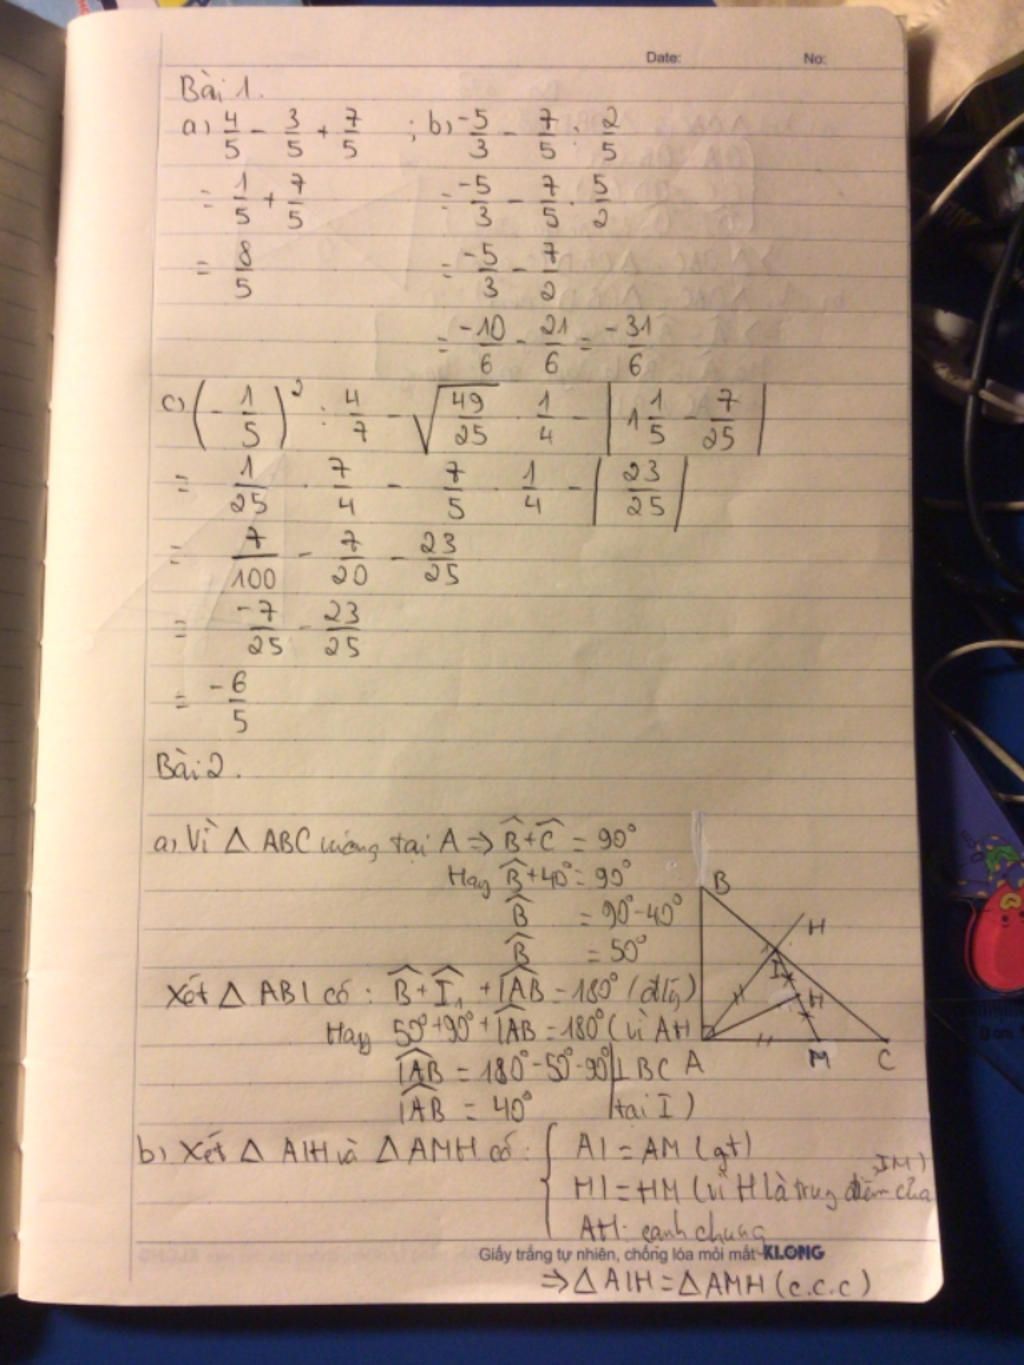 Date: No:
Bài 1.
a) 4/5 - 3/5 + 7/5 ; b) -5/3 - 7/5 : 2/5
= 1/5 + 7/5 = -5/3 - 7/5 . 5/2
= 8/5 = -5/3 - 7/2
= -10/6 - 21/6 = -31/6
c) (-1/5)² : 4/7 - √(49/25) . 1/4 - |1 1/5 - 7/25|
= 1/25 . 7/4 - 7/5 . 1/4 - |23/25|
= 7/100 - 7/20 - 23/25
= -7/25 - 23/25
= -6/5
Bài 2.
a) Vì △ ABC vuông tại A ⇒ B̂ + Ĉ = 90°
Hay B̂ + 40° = 90°
B̂ = 90° - 40°
B̂ = 50°
B
H
I
H
M C
A
Xét △ ABI có : B̂ + Î₁ + IAB̂ = 180° (đlý)
Hay 50° + 90° + IAB̂ = 180° (vì AH
IAB̂ = 180° - 50° - 90° ⊥ BC
IAB̂ = 40° tại I)
b) Xét △ AIH và △ AMH có : { AI = AM (gt)
HI = HM (vì H là trung điểm của IM)
AH : cạnh chung
Giấy trắng tự nhiên, chống lóa mỏi mắt KLONG
⇒ △ AIH = △ AMH (c.c.c)